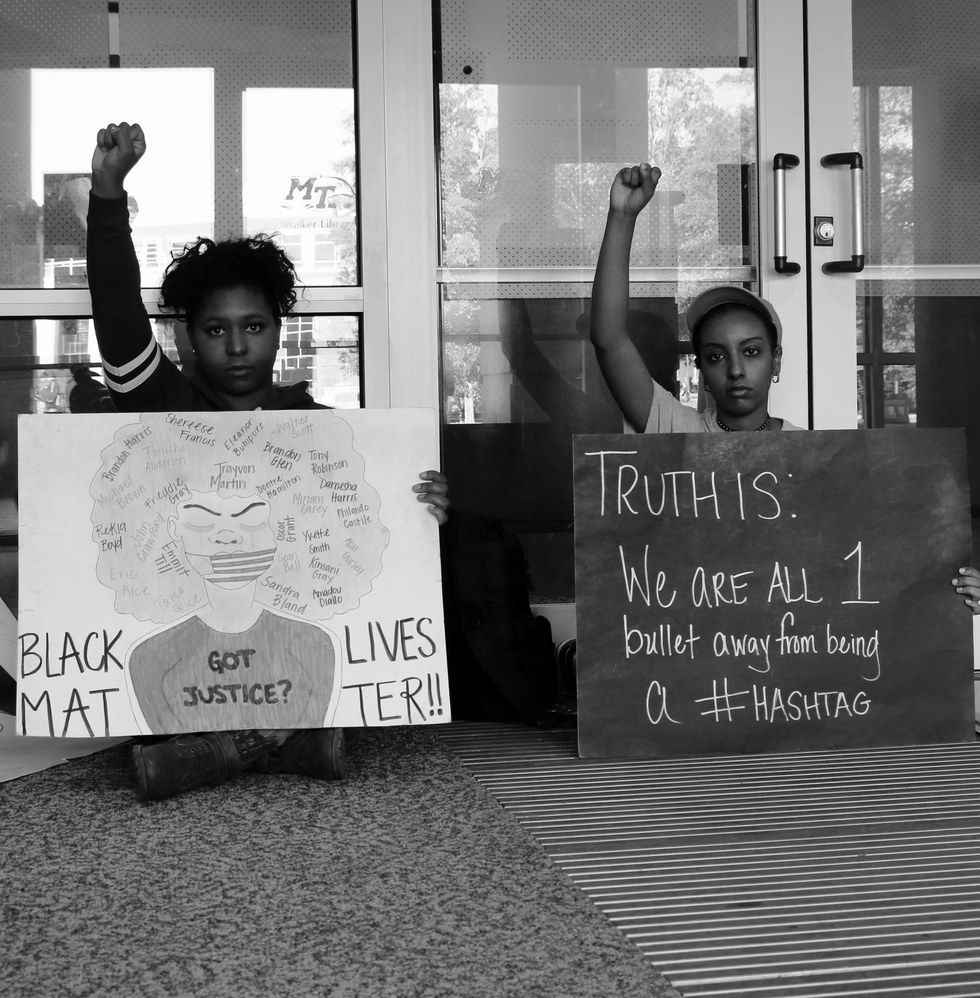 MT
Walker Libr
Brandon Harris
Shereese
Francis
Eleanor
Bumpurs
Walter
Scott
Tanisha
Anderson
Trayvon
Martin
Brandon
Glen
Tony
Robinson
Michael
Brown
Freddie
Gray
Dontre
Hamilton
Miriam
Carey
Darnesha
Harris
Philando
Castile
Rekia
Boyd
John
Crawford
Emmit
Till
Oscar
Grant
Yvette
Smith
Sean
Bell
Kimani
Gray
Eric
Tamir
Rice
Sandra
Bland
Amadou
Diallo
BLACK LIVES
MAT TER!!
GOT
JUSTICE?
TRUTH IS:
WE ARE ALL 1
bullet away from being
a #HASHTAG